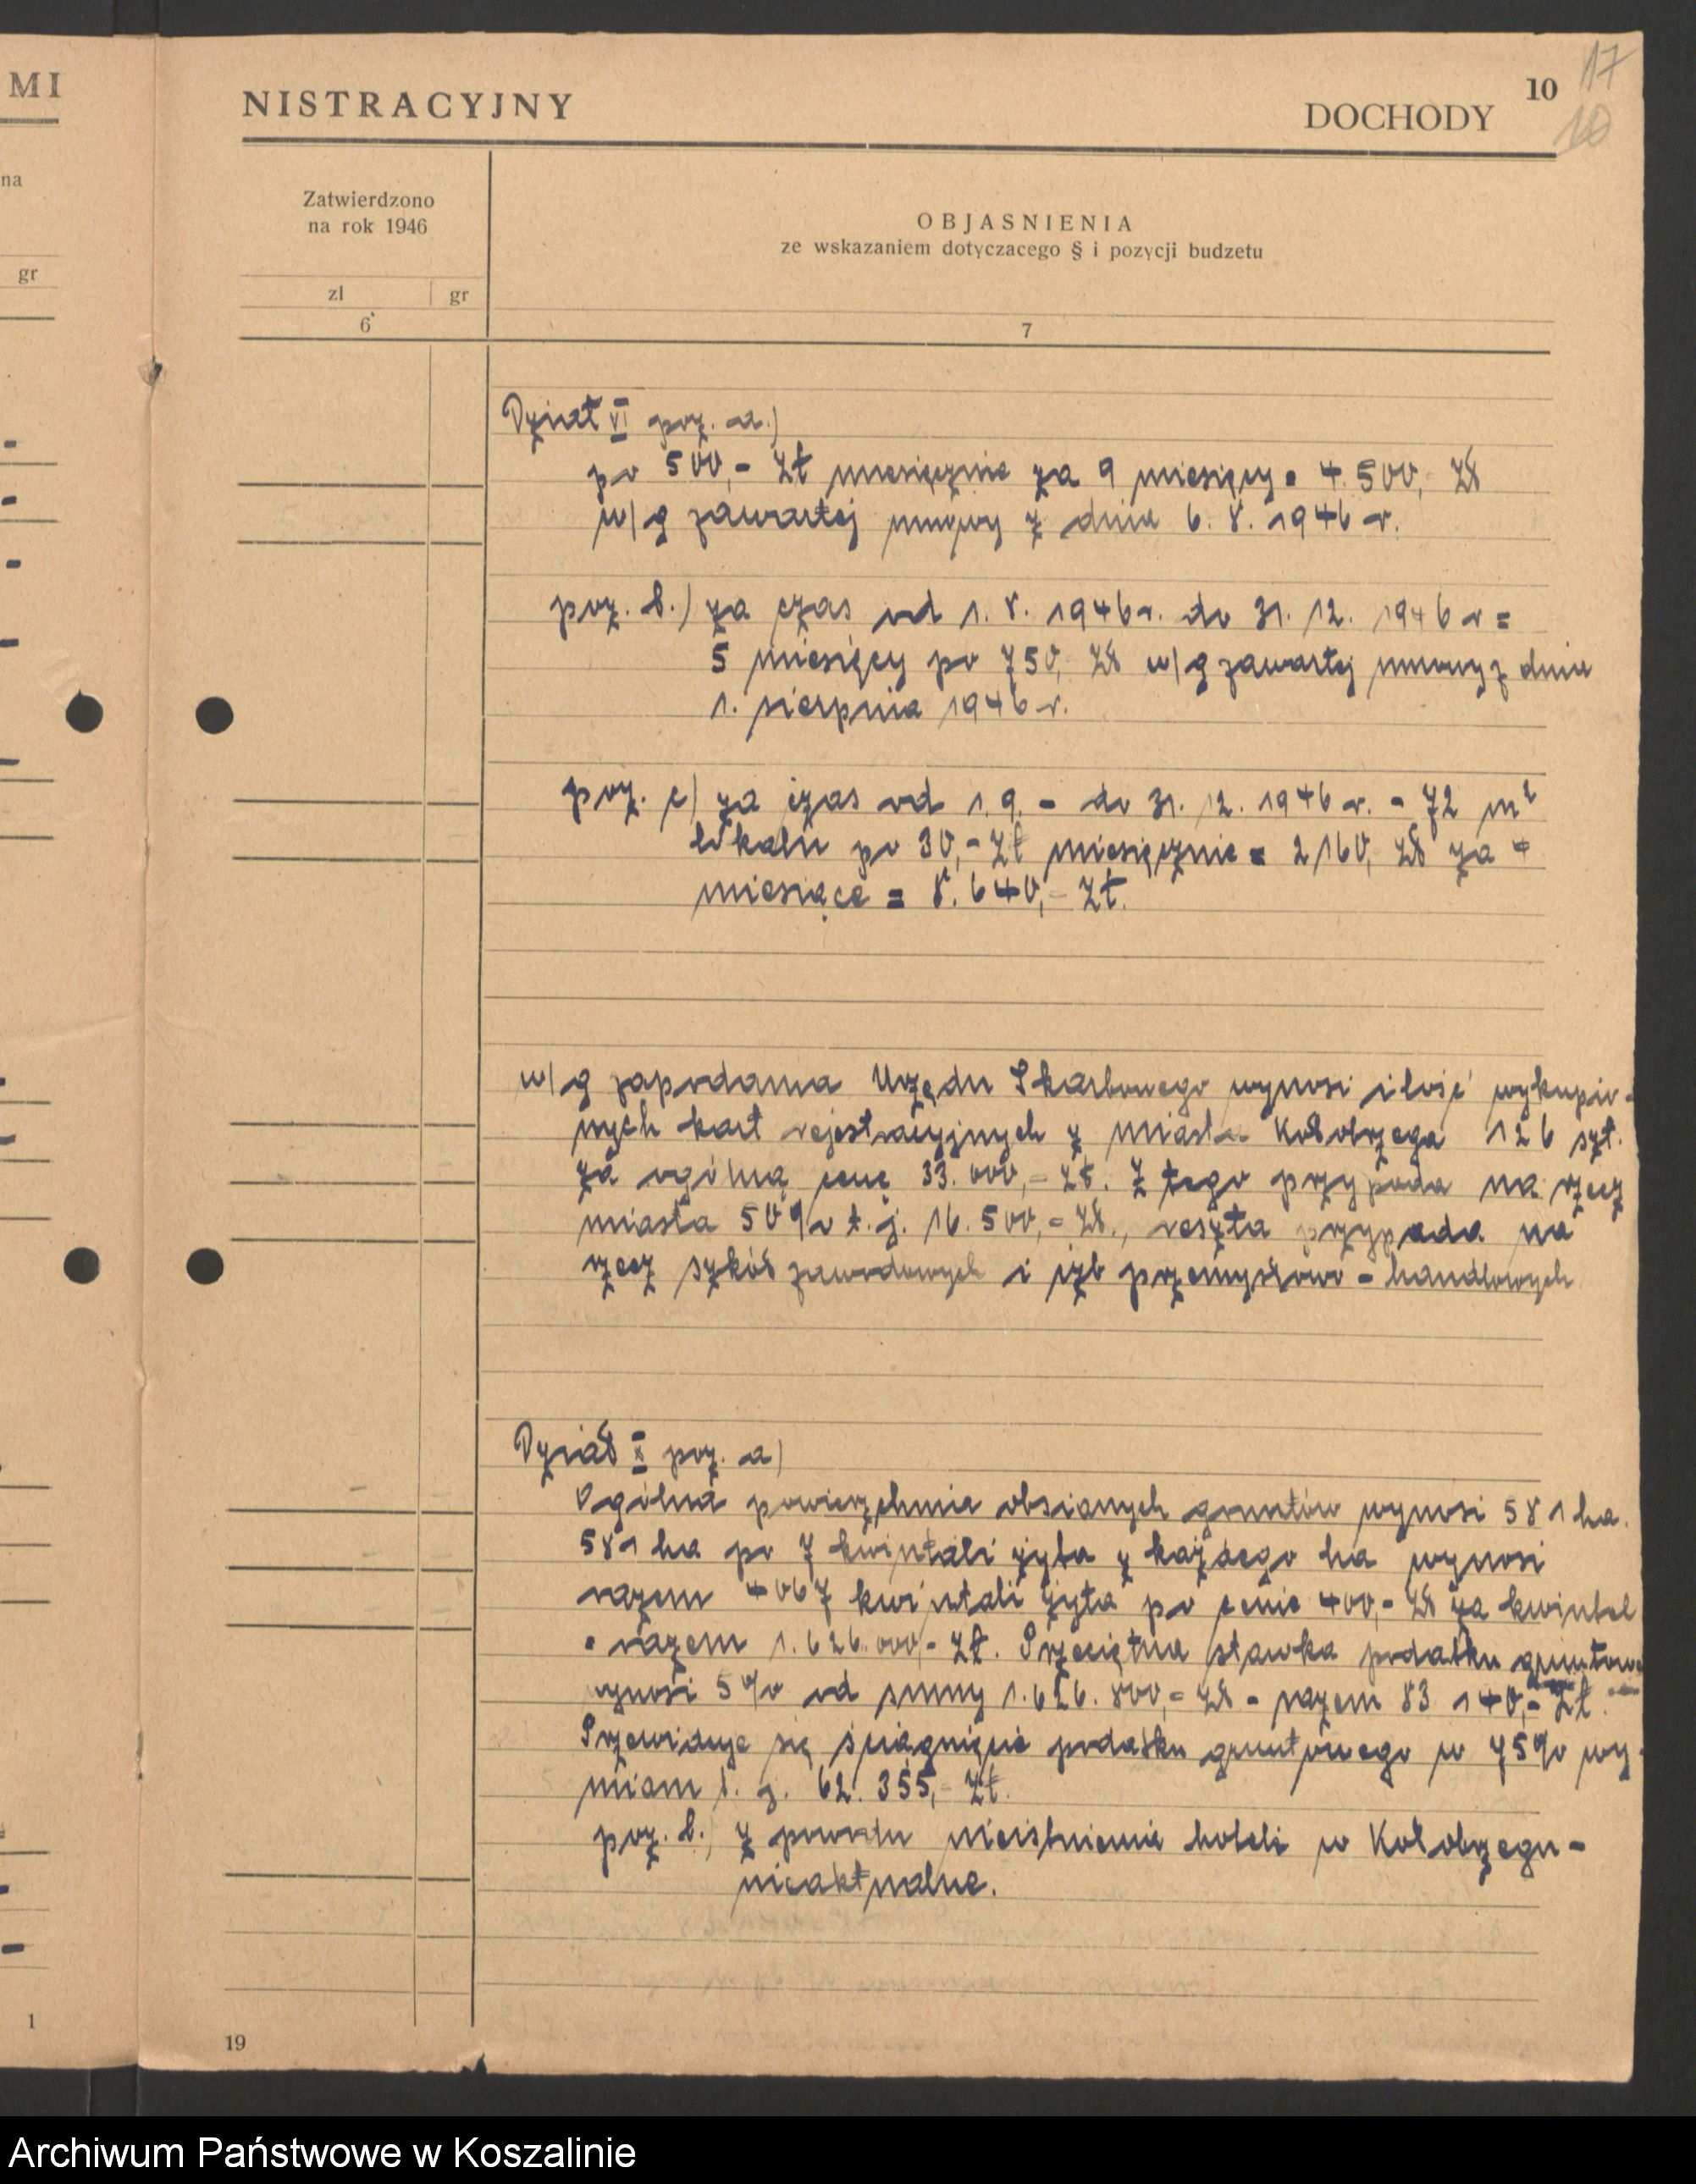 MI
na
gr
1
NISTRACYJNY
10
17
10
DOCHODY
Zatwierdzono
na rok 1946
OBJASNIENIA
ze wskazaniem dotyczacego § i pozycji budzetu
zl
gr
6
7
Dział VI poz. a)
po 500,- zł miesięcznie za 9 miesięcy = 4.500,- zł
w/g zawartej umowy z dnia 6. 8. 1946 r.
poz. b.) za czas od 1. 8. 1946 r. do 31. 12. 1946 r =
5 miesięcy po 750,- zł w/g zawartej umowy z dnia
1. sierpnia 1946 r.
poz. c) za czas od 1. 9. - do 31. 12. 1946 r. - 72 m²
lokalu po 30,- zł miesięcznie = 2160,- zł za 4
miesiące = 8.640,- zł.
w/g zapodania Urzędu Skarbowego wynosi ilość wykupio-
nych kart rejestracyjnych z miasta Kołobrzega 126 szt.
za ogólną cenę 33.000,- zł. Z tego przypada na rzecz
miasta 50% t. j. 16.500,- zł., reszta przypada na
rzecz szkół zawodowych i izb przemysłowo - handlowych
Dział X poz. a)
Ogólna powierzchnia obsianych gruntów wynosi 581 ha.
581 ha po 7 kwintali żyta z każdego ha wynosi
razem 4067 kwintali żyta po cenie 400,- zł za kwintal
= razem 1.626.000,- zł. Przeciętna stawka podatku gruntowe
wynosi 5% od sumy 1.626.800,- zł - razem 83 140,- zł.
Przewiduje się ściągnięcie podatku gruntowego w 75% wy-
miaru t. j. 62.355,- zł.
poz. b.) z powodu nieistnienia hoteli w Kołobrzegu -
nieaktualne.
19
Archiwum Państwowe w Koszalinie